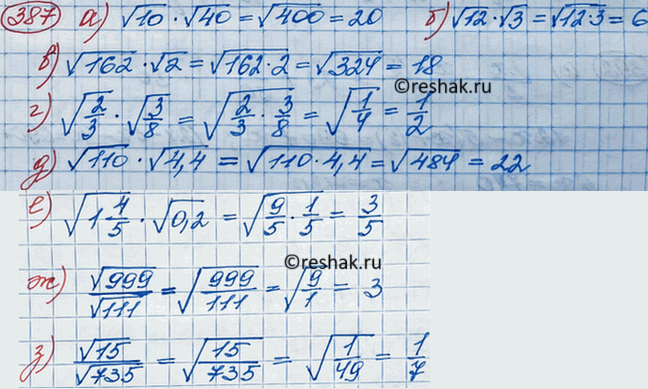 387 а) √10 · √40 = √400 = 20 б) √12 · √3 = √12·3 = 6
в) √162 · √2 = √162·2 = √324 = 18
©reshak.ru
г) √2/3 · √3/8 = √2/3 · 3/8 = √1/4 = 1/2
д) √110 · √4,4 = √110 · 4,4 = √484 = 22
е) √1 4/5 · √0,2 = √9/5 · 1/5 = 3/5
©reshak.ru
ж) √999/√111 = √999/111 = √9/1 = 3
з) √15/√735 = √15/735 = √1/49 = 1/7